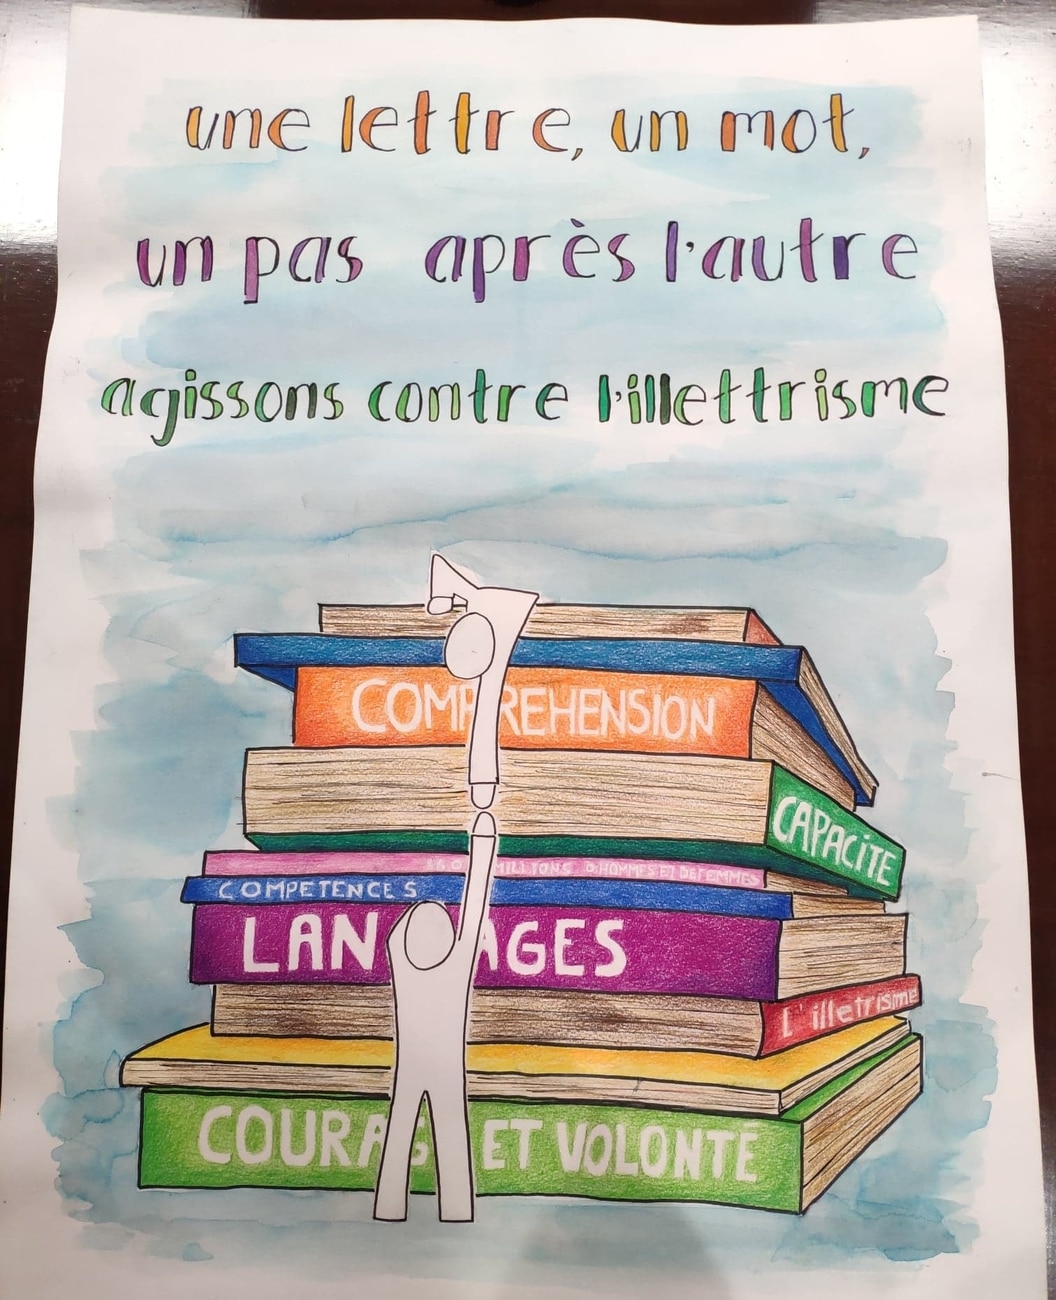 une lettre, un mot,
un pas après l'autre
agissons contre l'illettrisme
COMPREHENSION
CAPACITE
MILLIONS D'HOMMES ET DE FEMMES
COMPETENCES
LANGAGES
L'illetrisme
COURAGE ET VOLONTÉ